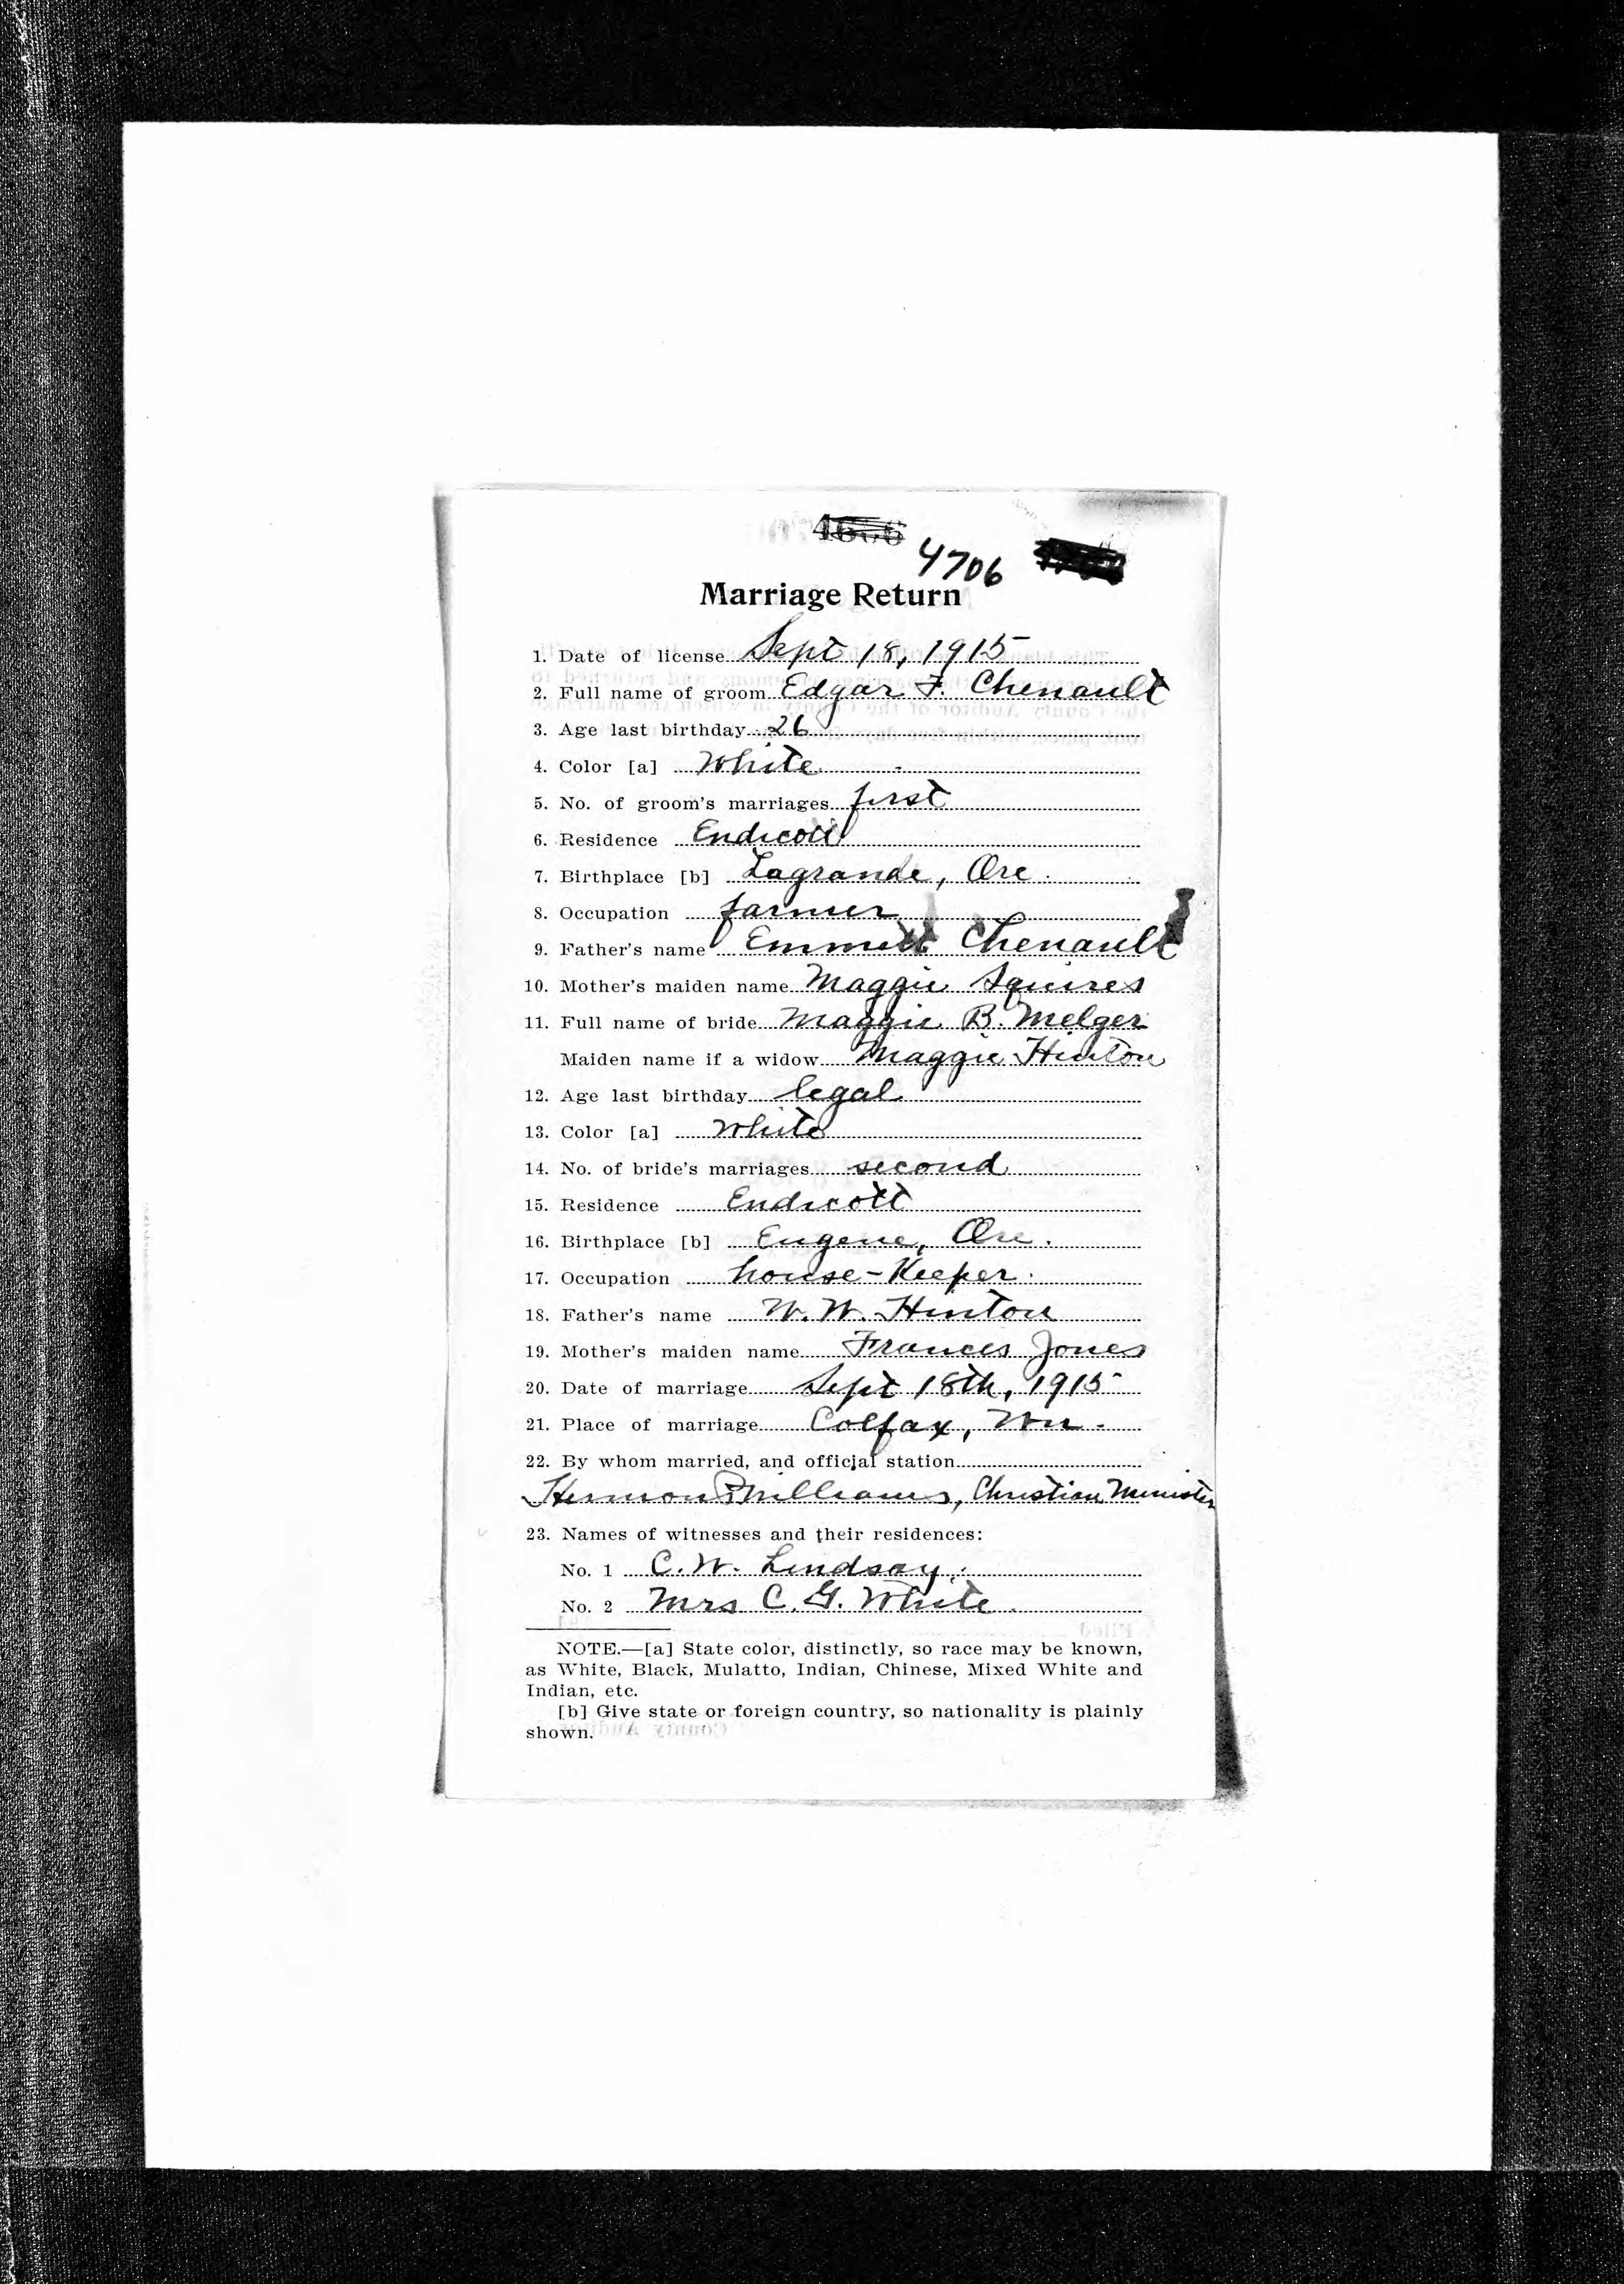 4706
Marriage Return
1. Date of license Sept 18, 1915
2. Full name of groom Edgar F. Chenault
3. Age last birthday 26
4. Color [a] White
5. No. of groom's marriages first
6. Residence Endicott
7. Birthplace [b] Lagrande, Ore.
8. Occupation farmer
9. Father's name Emmett Chenault
10. Mother's maiden name Maggie Squires
11. Full name of bride Maggie B. Melger
Maiden name if a widow Maggie Hinton
12. Age last birthday legal
13. Color [a] White
14. No. of bride's marriages second
15. Residence Endicott
16. Birthplace [b] Eugene, Ore.
17. Occupation house-Keeper.
18. Father's name W. W. Hinton
19. Mother's maiden name Frances Jones
20. Date of marriage Sept 18th, 1915
21. Place of marriage Colfax, Wn.
22. By whom married, and official station
Hermon P. Williams, Christian Minister
23. Names of witnesses and their residences:
No. 1 C. W. Lindsay.
No. 2 Mrs C. G. White
NOTE.—[a] State color, distinctly, so race may be known,
as White, Black, Mulatto, Indian, Chinese, Mixed White and
Indian, etc.
[b] Give state or foreign country, so nationality is plainly
shown.